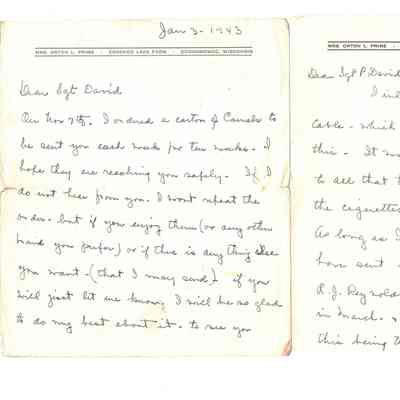 Jan 3 - 1943
MRS. ORTON L. PRIME · · OCONOMOWOC, WISCONSIN
Dear Sgt David
On Nov 7th. I ordered a carton of Camels to
be sent you each week for ten weeks. I
hope they are reaching you safely. If I
do not hear from you. I wont repeat the
order - but if you enjoy them (or any other
brand you prefer) or if this is any thing else
you want - (that I may send) - if you
will just let me know, I will be so glad
to do my best about it. - to see you
MRS. ORTON L. PRIME
Dear Sgt P. David
cable - which
this -
to all that
the cigarettes
As long as I
have sent
R. J. Reynolds
in March -
this being